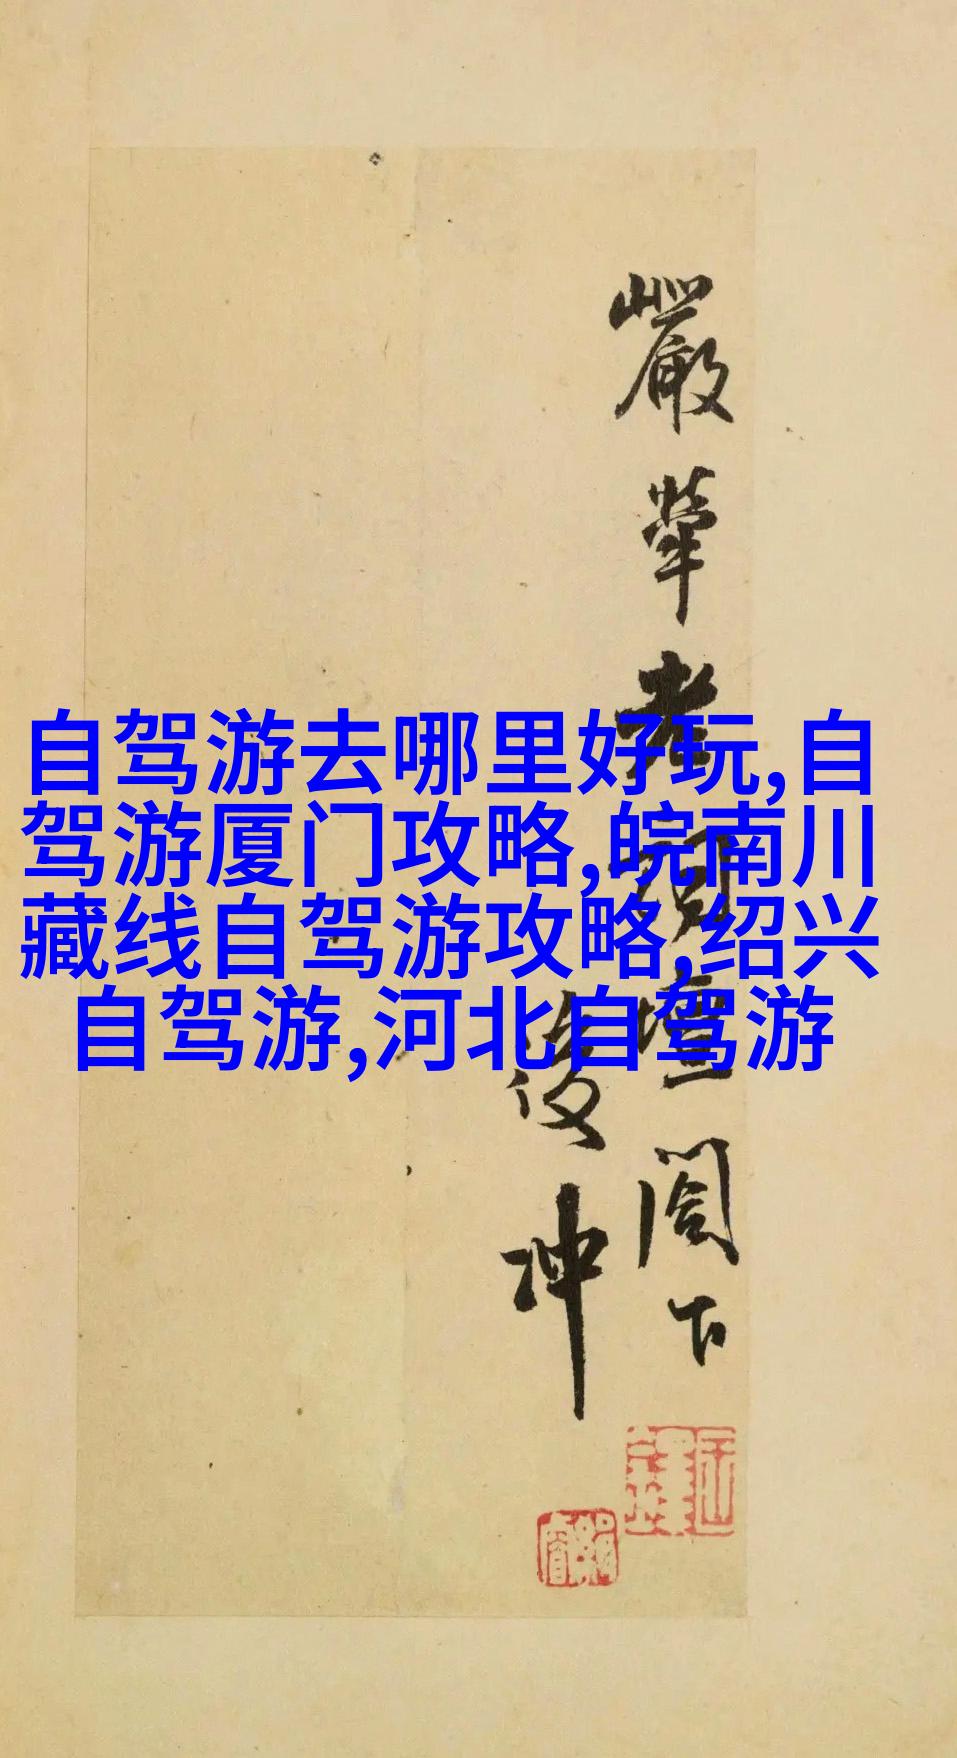 自驾游去哪里好玩,自
驾游厦门攻略,皖南川
藏线自驾游攻略,绍兴
自驾游,河北自驾游
嚴犖老詞壇閣下
後冲